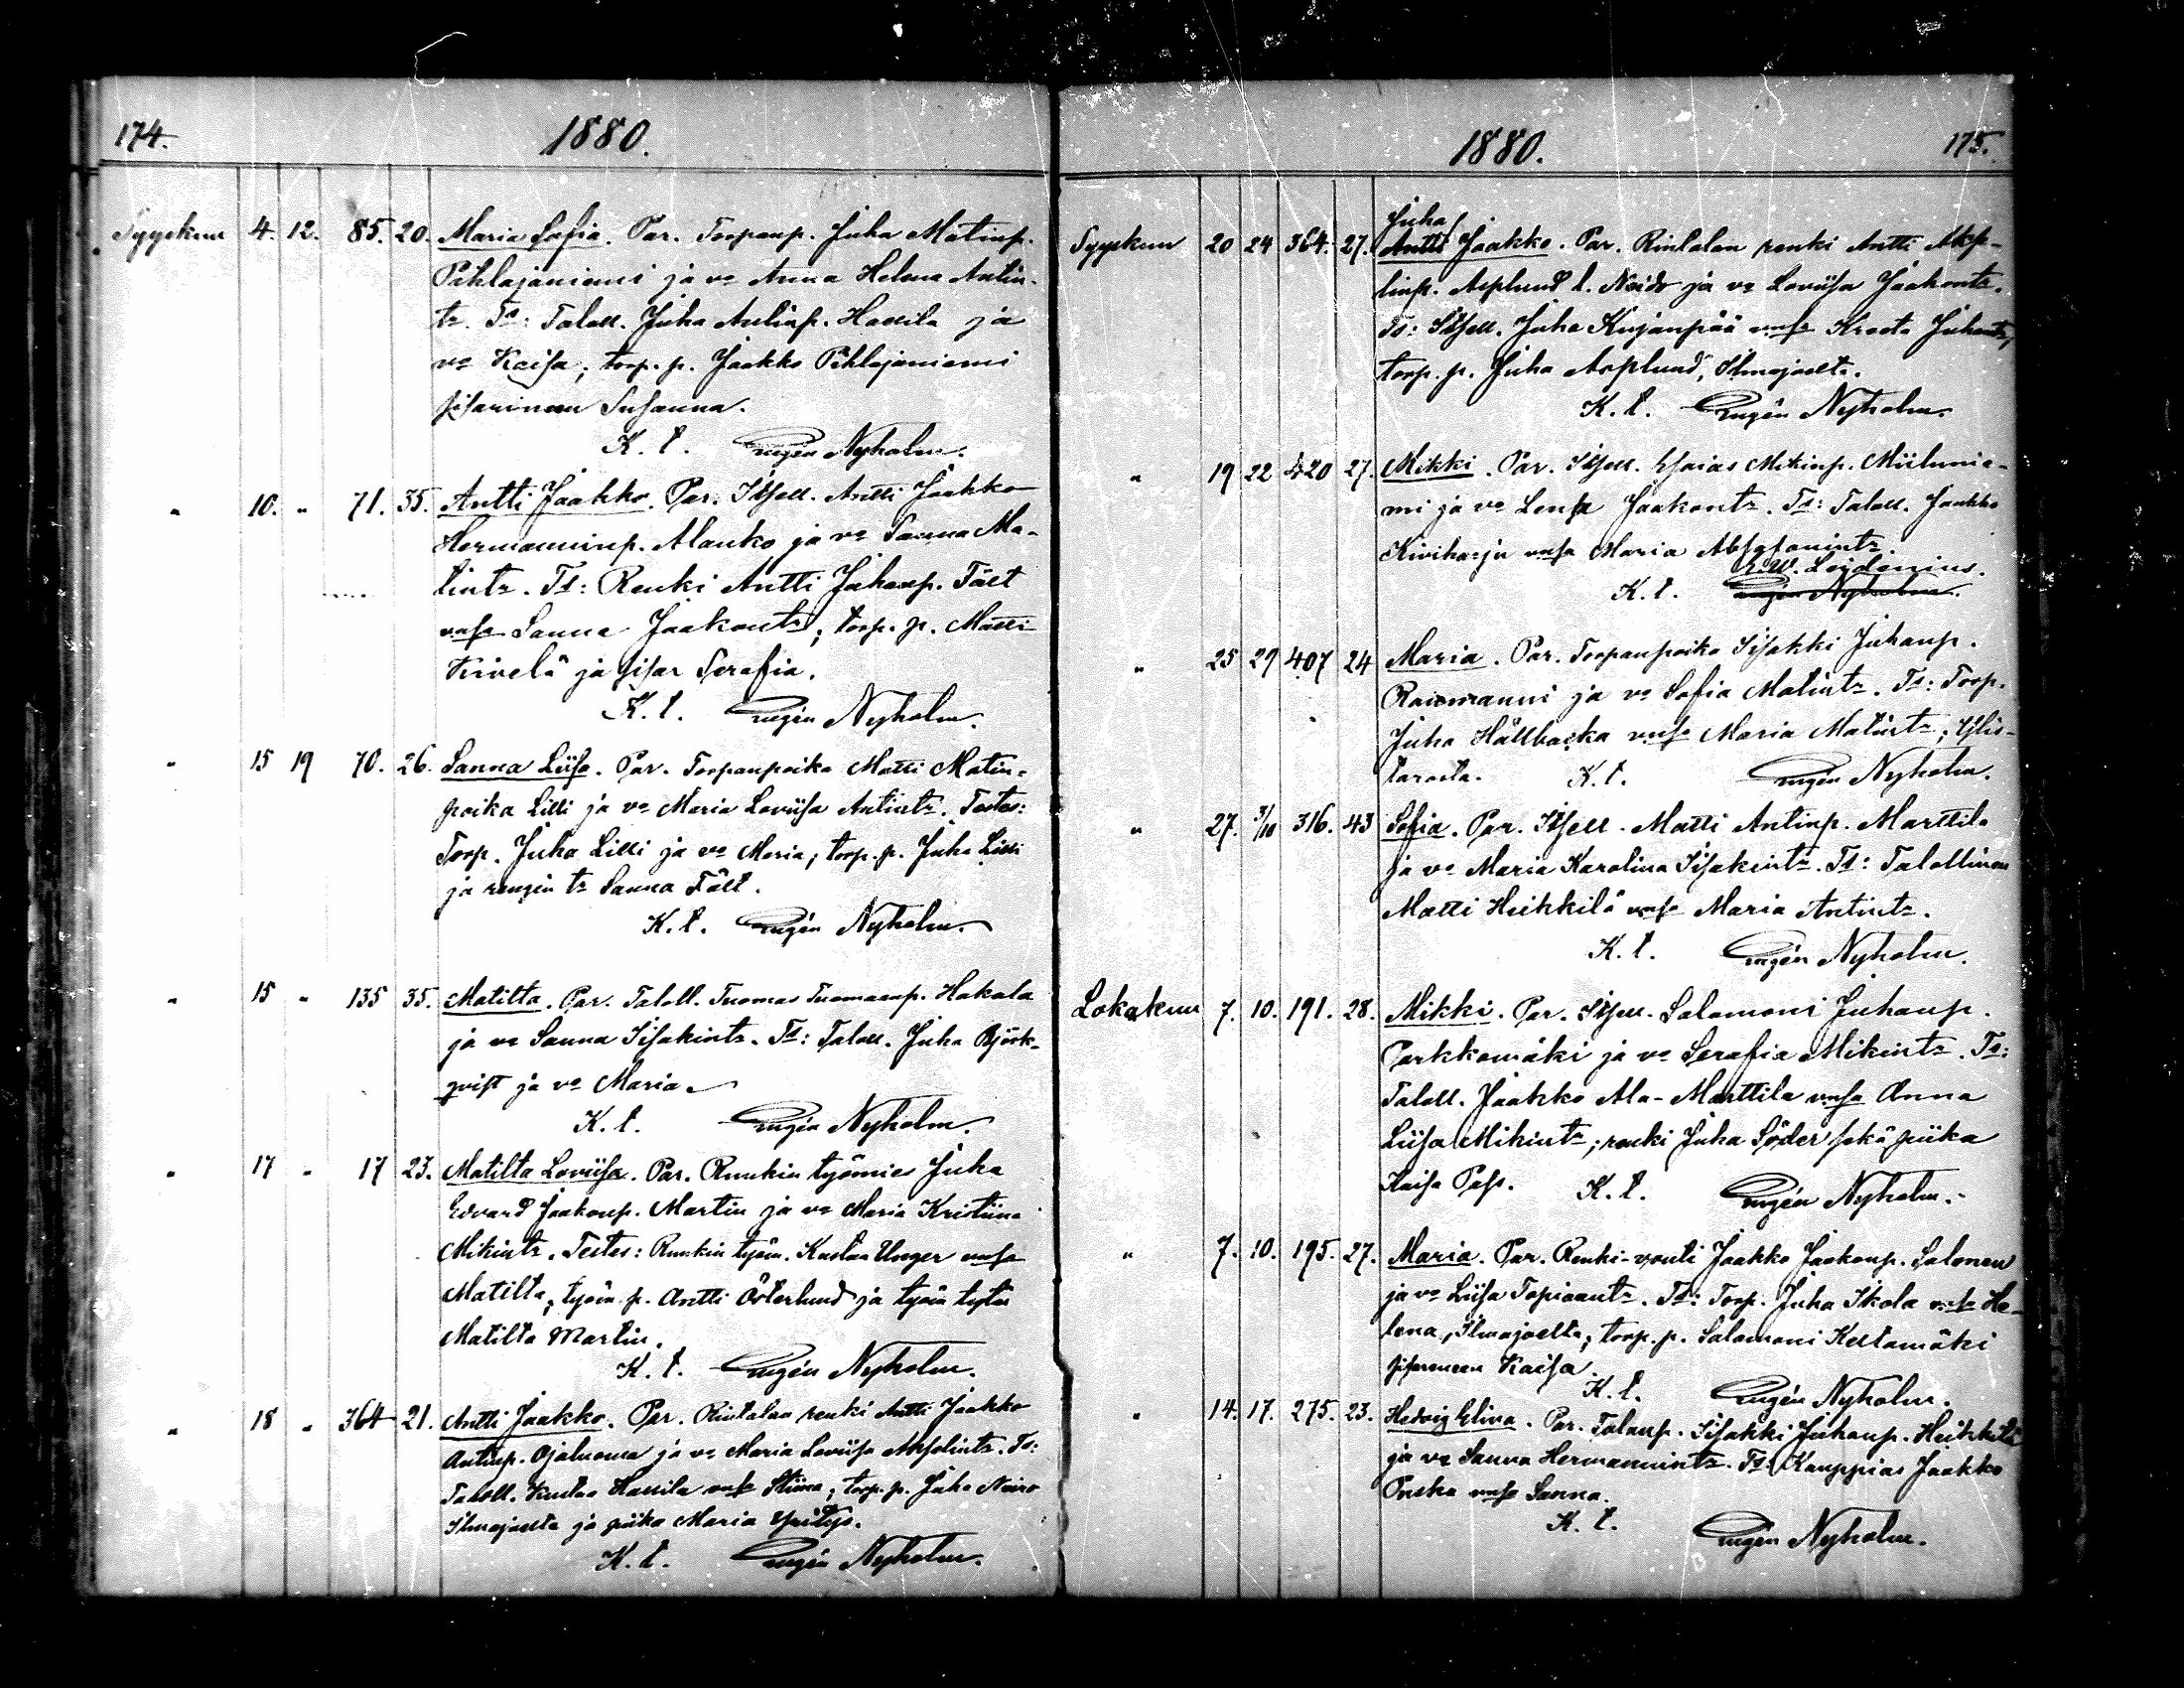 174.
1880.
Syyskuu 4. 12. 85. 20. Maria Sofia. Par. Torpanp. Juha Matinp.
Pihlajaniemi ja vo Anna Helena Antin-
tr. Ts: Taloll. Juha Antinp. Hassila ja
vo Kaisa; torp. p. Jaakko Pihlajaniemi
sisarineen Susanna.
K. t. Eugén Nyholm.
" 10. " 71. 35. Antti Jaakko. Par. Itsell. Antti Jaakko
Hermanninp. Alanko ja vo Sanna Ma-
tintr. Ts: Renki Antti Juhanp. Fält
vmsa Sanna Jaakontr; torp. p. Matti
Kivelä ja sisar Serafia.
K. t. Eugén Nyholm.
" 15 19 70. 26. Sanna Liisa. Par. Torpanpoika Matti Matin-
poika Lilli ja vo Maria Loviisa Antintr. Testes:
Torp. Juha Lilli ja vo Maria; torp. p. Juha Lilli
ja rengin tr Sanna Fält.
K. t. Eugén Nyholm.
" 15 " 135 35. Matilta. Par. Taloll. Tuomas Tuomaanp. Hakala
ja vo Sanna Iisakintr. Ts: Taloll. Juha Björk-
qvist ja vo Maria.
K. t. Eugén Nyholm.
" 17 " 17 23. Matilta Loviisa. Par. Ruukin työmies Juha
Edvard Jaakonp. Martin ja vo Maria Kristiina
Mikintr. Testes: Ruukin työm. Kustaa Unger vmsa
Matilta, työm. p. Antti Österlund ja työm tytär
Matilta Martin.
K. t. Eugén Nyholm.
" 18 " 364 21. Antti Jaakko. Par. Rintalan renki Antti Jaakko
Antinp. Ojaluoma ja vo Maria Loviisa Akselintr. Ts:
Taloll. Kustaa Hassila vmsa Stiina; torp. p. Juha Neiro
Ilmajoelta ja piika Maria Yritys.
K. t. Eugén Nyholm.
1880.
175.
Juha
Syyskuu 20 24 364. 27. Antti Jaakko. Par. Rintalan renki Antti Akse-
linp. Asplund l. Neiro ja vo Loviisa Jaakontr.
Ts: Itsell. Juha Kujanpää vmsa Kreeta Juhontr,
torp. p. Juha Asplund, Ilmajoelta.
K. t. Eugén Nyholm.
" 19 22 420 27. Mikki. Par. Itsell. Esaias Mikinp. Miilunie-
mi ja vo Leena Jaakontr. Ts: Taloll. Jaakko
Kiviharju vmsa Maria Absalonintr.
K. t. Leidenius.
Eugén Nyholm.
" 25 29 407 24 Maria. Par. Torpanpoika Iisakki Juhanp.
Raismanni ja vo Sofia Matintr. Ts: Torp.
Juha Hällbacka vmsa Maria Matintr; Ylis-
tarosta. K. t. Eugén Nyholm.
" 27. 3/10 316. 43 Sofia. Par. Itsell. Matti Antinp. Marttila
ja vo Maria Karolina Iisakintr. Ts: Talollinen
Matti Heikkilä vmsa Maria Antintr.
K. t. Eugén Nyholm.
Lokakuu 7. 10. 191. 28. Mikki. Par. Itsell. Salomoni Juhanp.
Parkkomäki ja vo Serafia Mikintr. Ts:
Taloll. Jaakko Ala-Marttila vmsa Anna
Liisa Mikintr; renki Juha Söder sekä piika
Kaisa Pass. K. t. Eugén Nyholm.
" 7. 10. 195. 27. Maria. Par. Renki-vouti Jaakko Jaakonp. Salonen
ja vo Liisa Topiaantr. Ts: Torp. Juha Ikola vmsa He-
lena, Ilmajoelta; torp. p. Salomoni Keltamäki
sisarineen Kaisa.
K. t. Eugén Nyholm.
" 14. 17. 275. 23. Hedvig Elina. Par. Talonp. Iisakki Juhanp. Heikkilä
ja vo Sanna Hermannintr. Ts: Kauppias Jaakko
Pouska vmsa Sanna.
K. t. Eugén Nyholm.